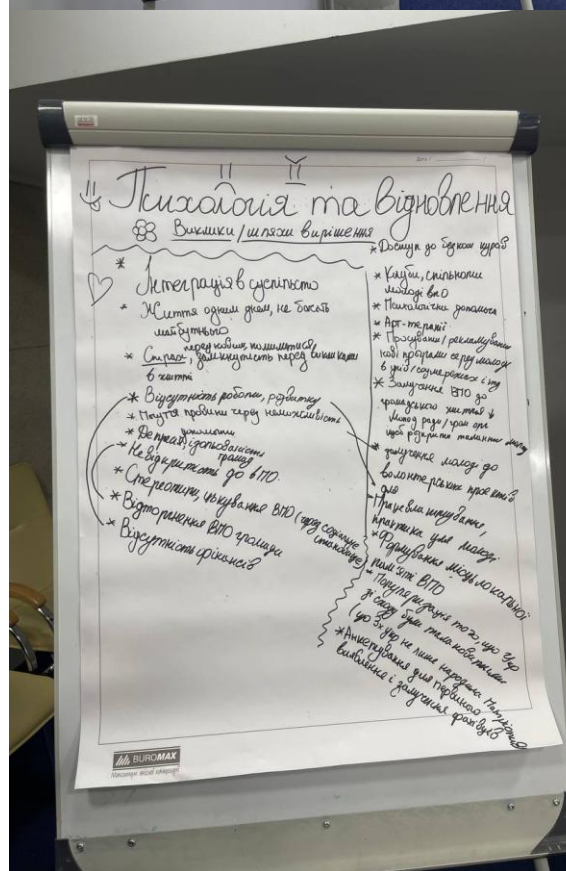 Психологія та відновлення
Виклики / шляхи вирішення
* Інтеграція в суспільство
* Життя одним днем, не бачать
майбутнього
* Страх, перед новим, помилитися,
замкнутість перед викликами
в житті
* Відсутність роботи, розвитку
* Почуття провини через неможливість
допомогти
* Депресії, ідольованість
* Невідкритість до ВПО громад
* Стереотипи, цькування ВПО (через соціальне
становище)
* Відторгнення ВПО громади
* Відсутність фінансів
* Доступ до безкош курсів
* Клуби, спільноти
молоді ВПО
* Психологічна допомога
* Арт-терапії
* Просування / рекламування
нові програми серед молоді
в універі / соцмережах і тд
* Залучення ВПО до
громадського життя
Молод ради / гром орг
щоб розкрити таланти молоді
* залучення молоді до
волонтерських проєктів
* Працевлаштування,
практика для молоді
* Формування місць локальної
пам'яті ВПО
* Популяризація того, що Укр
зі сходу були талановитими
(що Зх укр не лише народила
* Анкетування для первинного
виявлення і залучення фахівців
BUROMAX